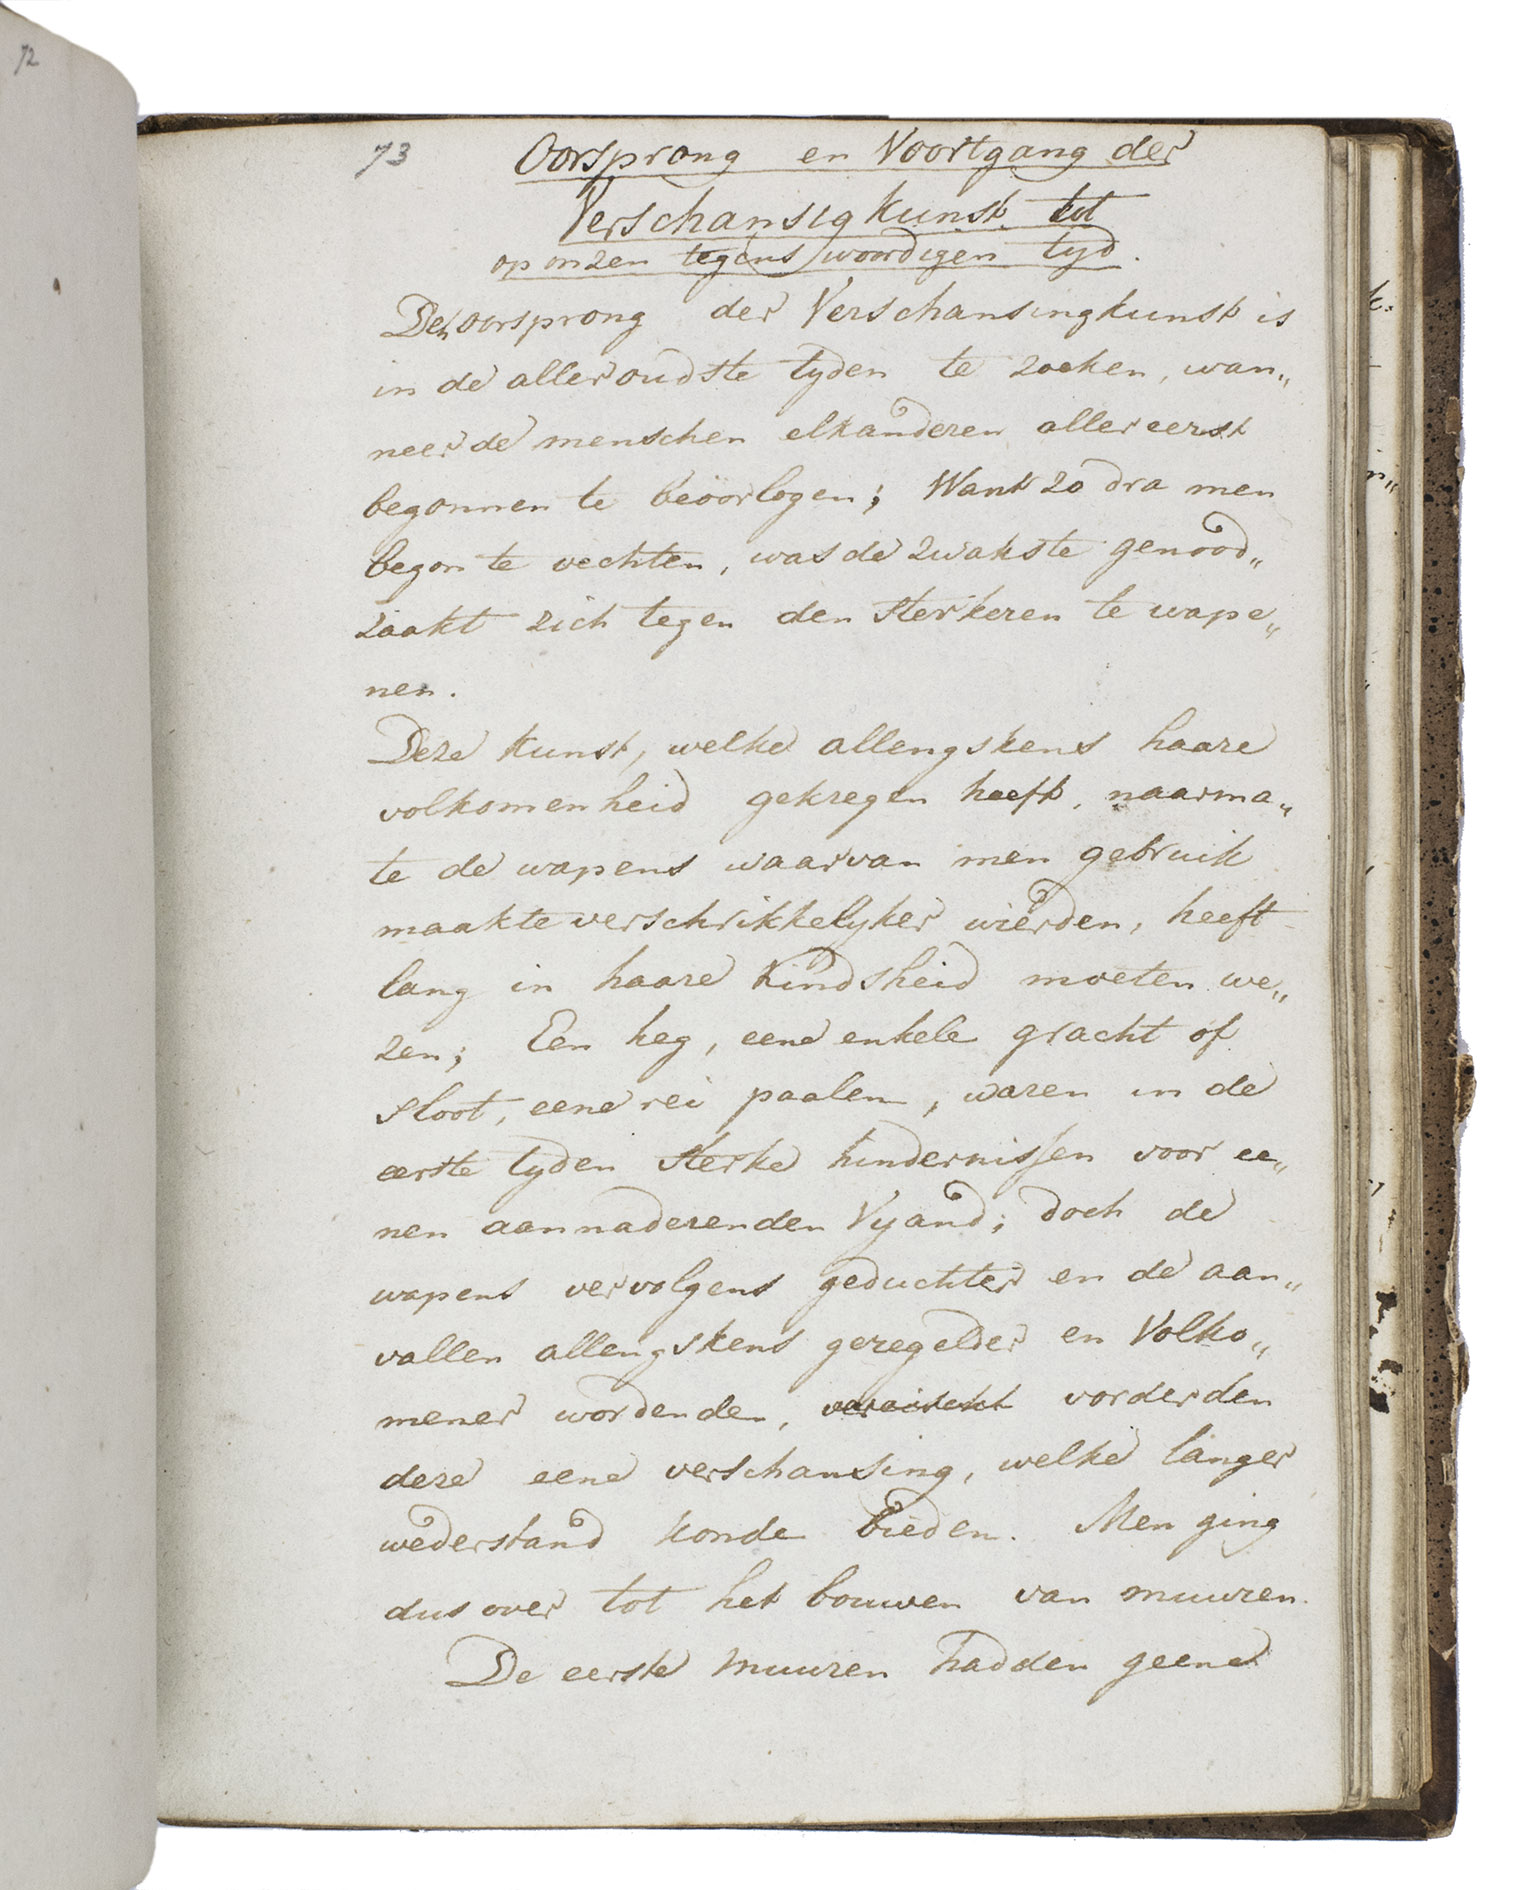 72
73
Oorsprong en Voortgang der
Verschansigkunst tot
op onzen tegenswoordigen tyd.
Den oorsprong der Verschansingkunst is
in de alleroudste tyden te zoeken, wan„
neer de menschen elkanderen allereerst
begonnen te beoorlogen; Want zo dra men
begon te vechten, was de zwakste genood„
zaakt zich tegen den sterkeren te wape„
nen.
Deze kunst, welke allengskens haare
volkomenheid gekregen heeft, naarma„
te de wapens waarvan men gebruik
maakte verschrikkelyker wierden, heeft
lang in haare kindsheid moeten we„
zen; Een heg, eene enkele gracht of
sloot, eene rei paalen, waren in de
eerste tyden sterke hindernissen voor ee„
nen aannaderenden Vyand; doch de
wapens vervolgens geduchter en de aan„
vallen allengskens geregelder en Volko„
mener wordenden, vorderden
deze eene verschansing, welke langer
wederstand konde bieden. Men ging
dus over tot het bouwen van muuren.
De eerste muuren hadden geene